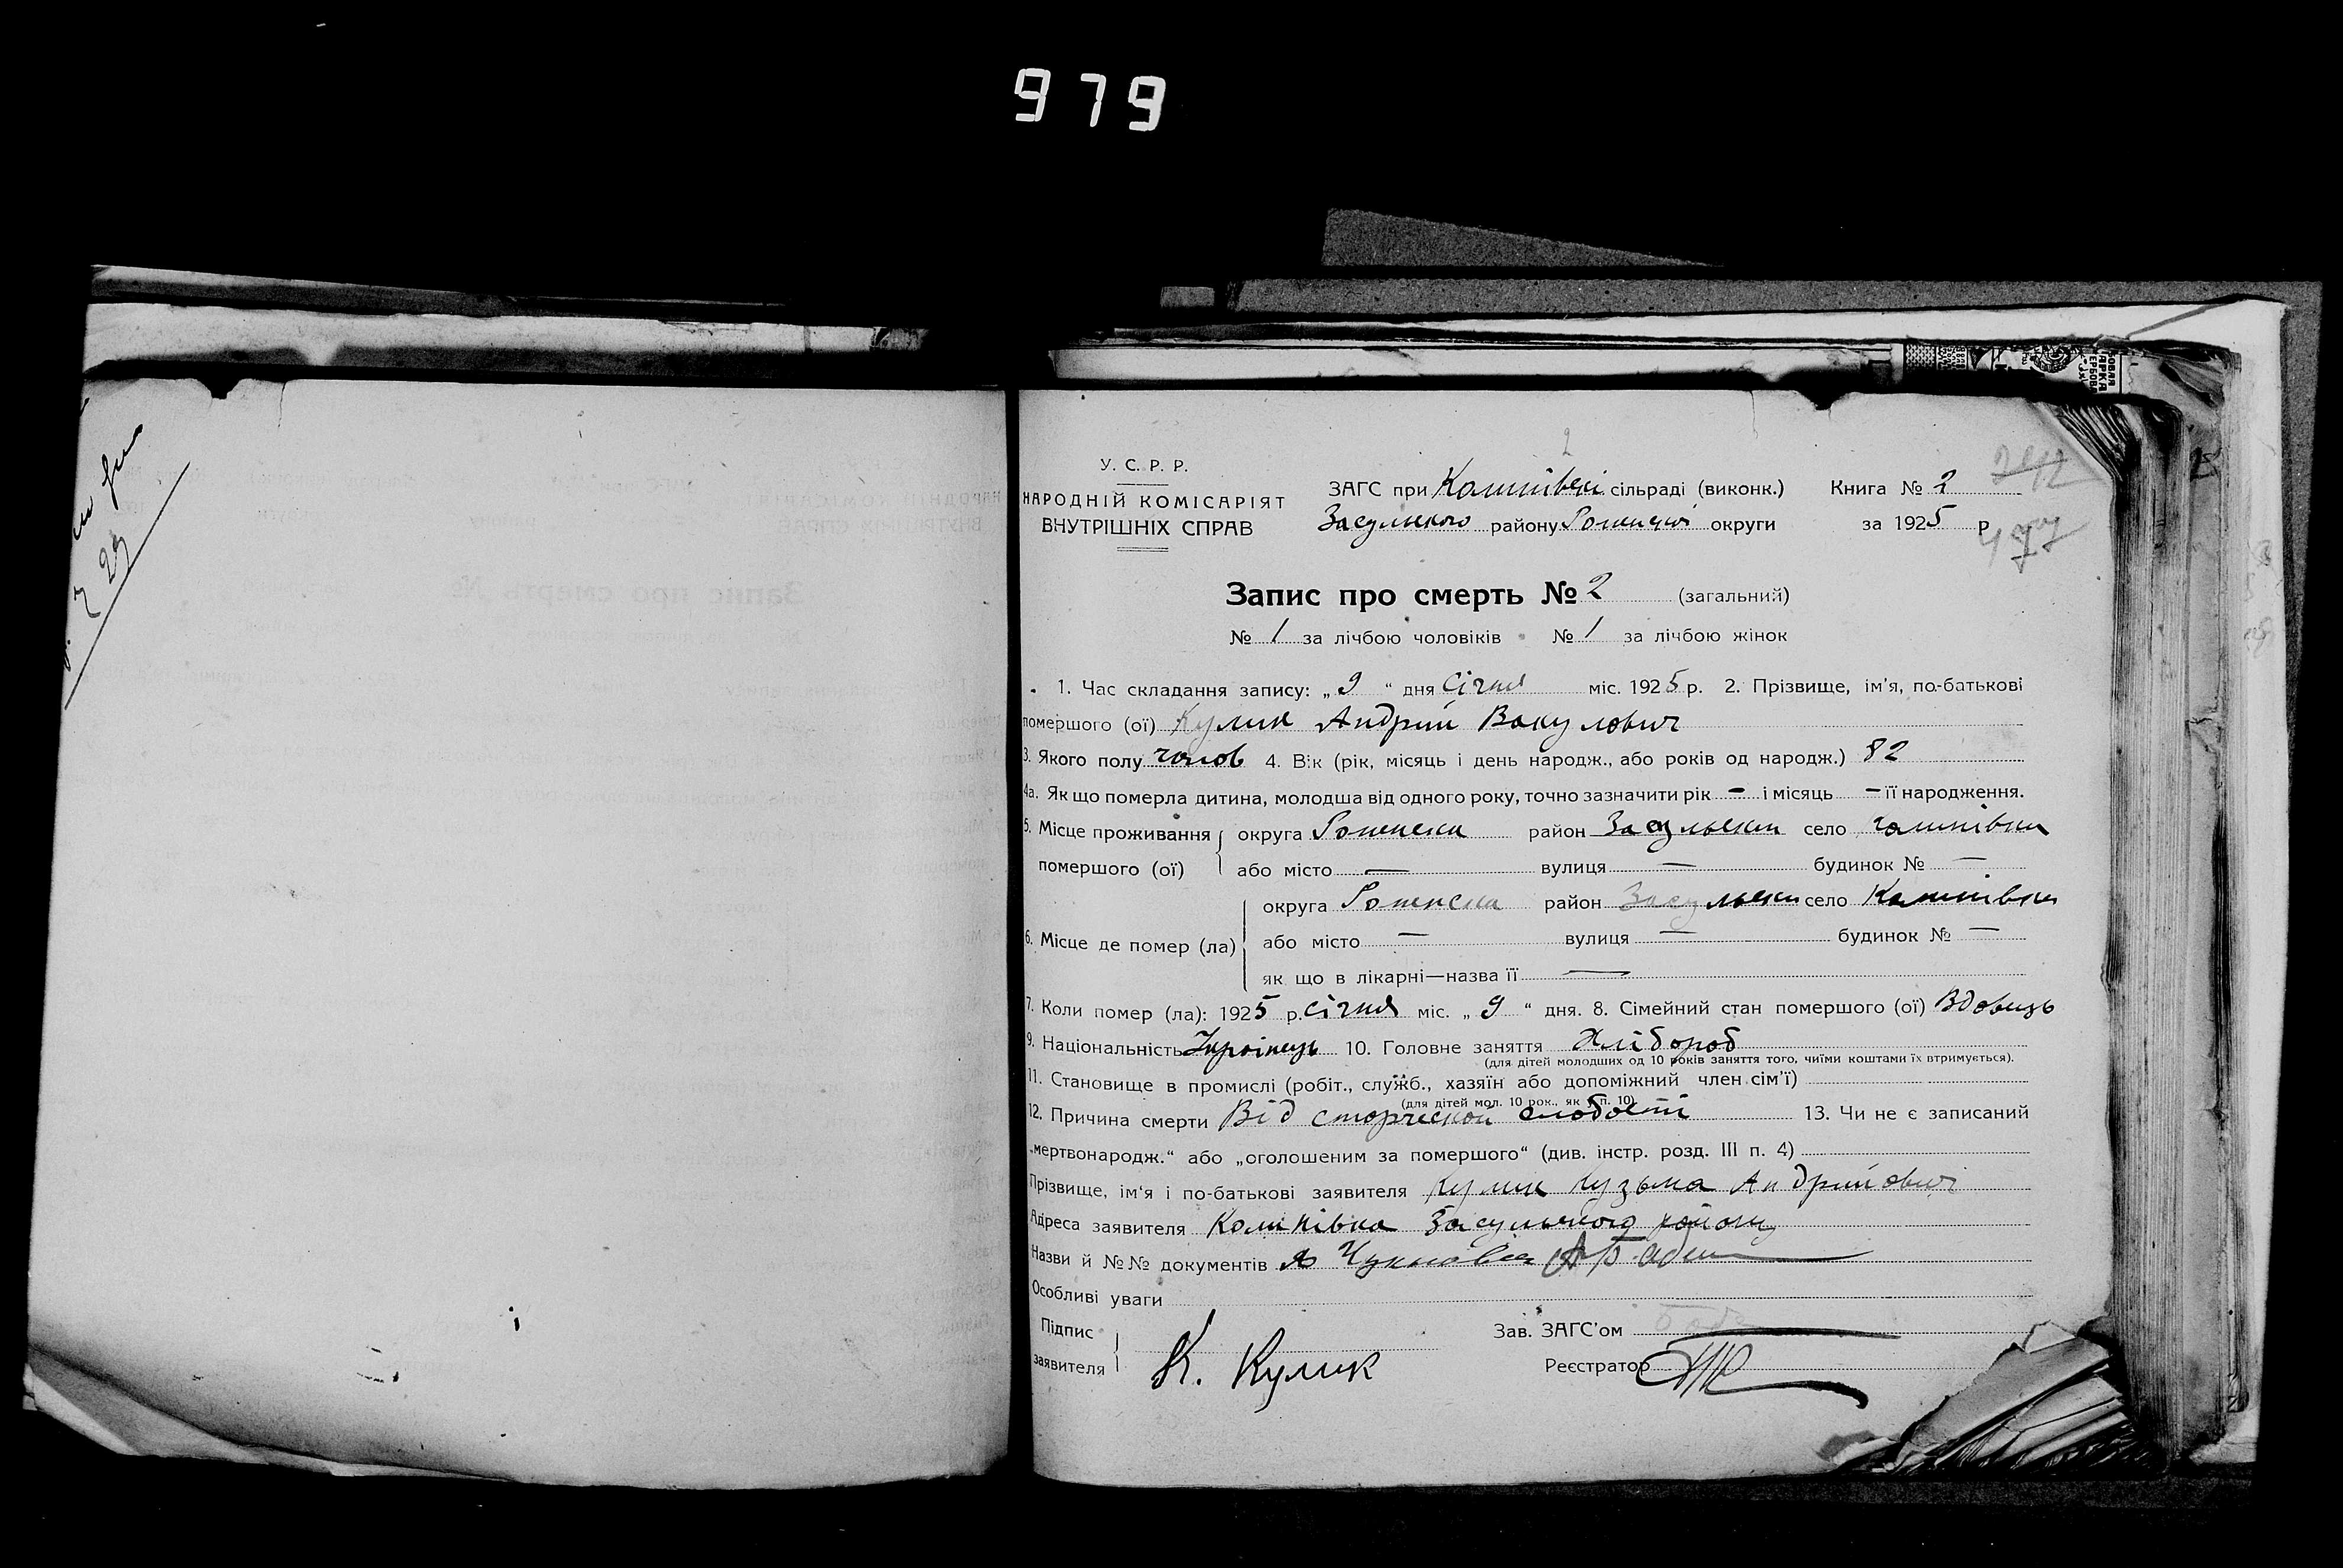 979
У. С. Р. Р.
НАРОДНІЙ КОМІСАРІЯТ
ВНУТРІШНІХ СПРАВ
ЗАГС при сільраді (виконк.) Книга № 2
Засульского району округи за 1925 р
Запис про смерть № 2 (загальний)
№ 1 за лічбою чоловіків № 1 за лічбою жінок
1. Час складання запису: „ 9 “ дня Січня міс. 1925 р. 2. Прізвище, ім'я, по-батькові
помершого (ої) Кулик Андрий Вакулович
3. Якого полу чолов 4. Вік (рік, місяць і день народж., або років од народж.) 82
4а. Як що померла дитина, молодша від одного року, точно зазначити рік — і місяць — її народження.
5. Місце проживання округа Роменски район Засульски село
помершого (ої) або місто — вулиця — будинок № —
округа Роменски район Засульски село
6. Місце де помер (ла) або місто — вулиця — будинок № —
як що в лікарні—назва її —
7. Коли помер (ла): 1925 р. січня міс. „ 9 “ дня. 8. Сімейний стан помершого (ої) Вдовець
9. Національність Украінець 10. Головне заняття Хлібороб
(для дітей молодших од 10 років заняття того, чиїми коштами їх втримується).
11. Становище в промислі (робіт., служб., хазяїн або допоміжний член сім'ї)
(для дітей мол. 10 рок., як п. 10)
12. Причина смерти Від старческой слабости 13. Чи не є записаний
„мертвонародж.“ або „оголошеним за помершого“ (див. інстр. розд. III п. 4)
Прізвище, ім'я і по-батькові заявителя Кулик Кузьма Андрийович
Адреса заявителя Засульского району
Назви й №№ документів
Особливі уваги
Підпис
заявителя К. Кулик
Зав. ЗАГС'ом
Реєстратор